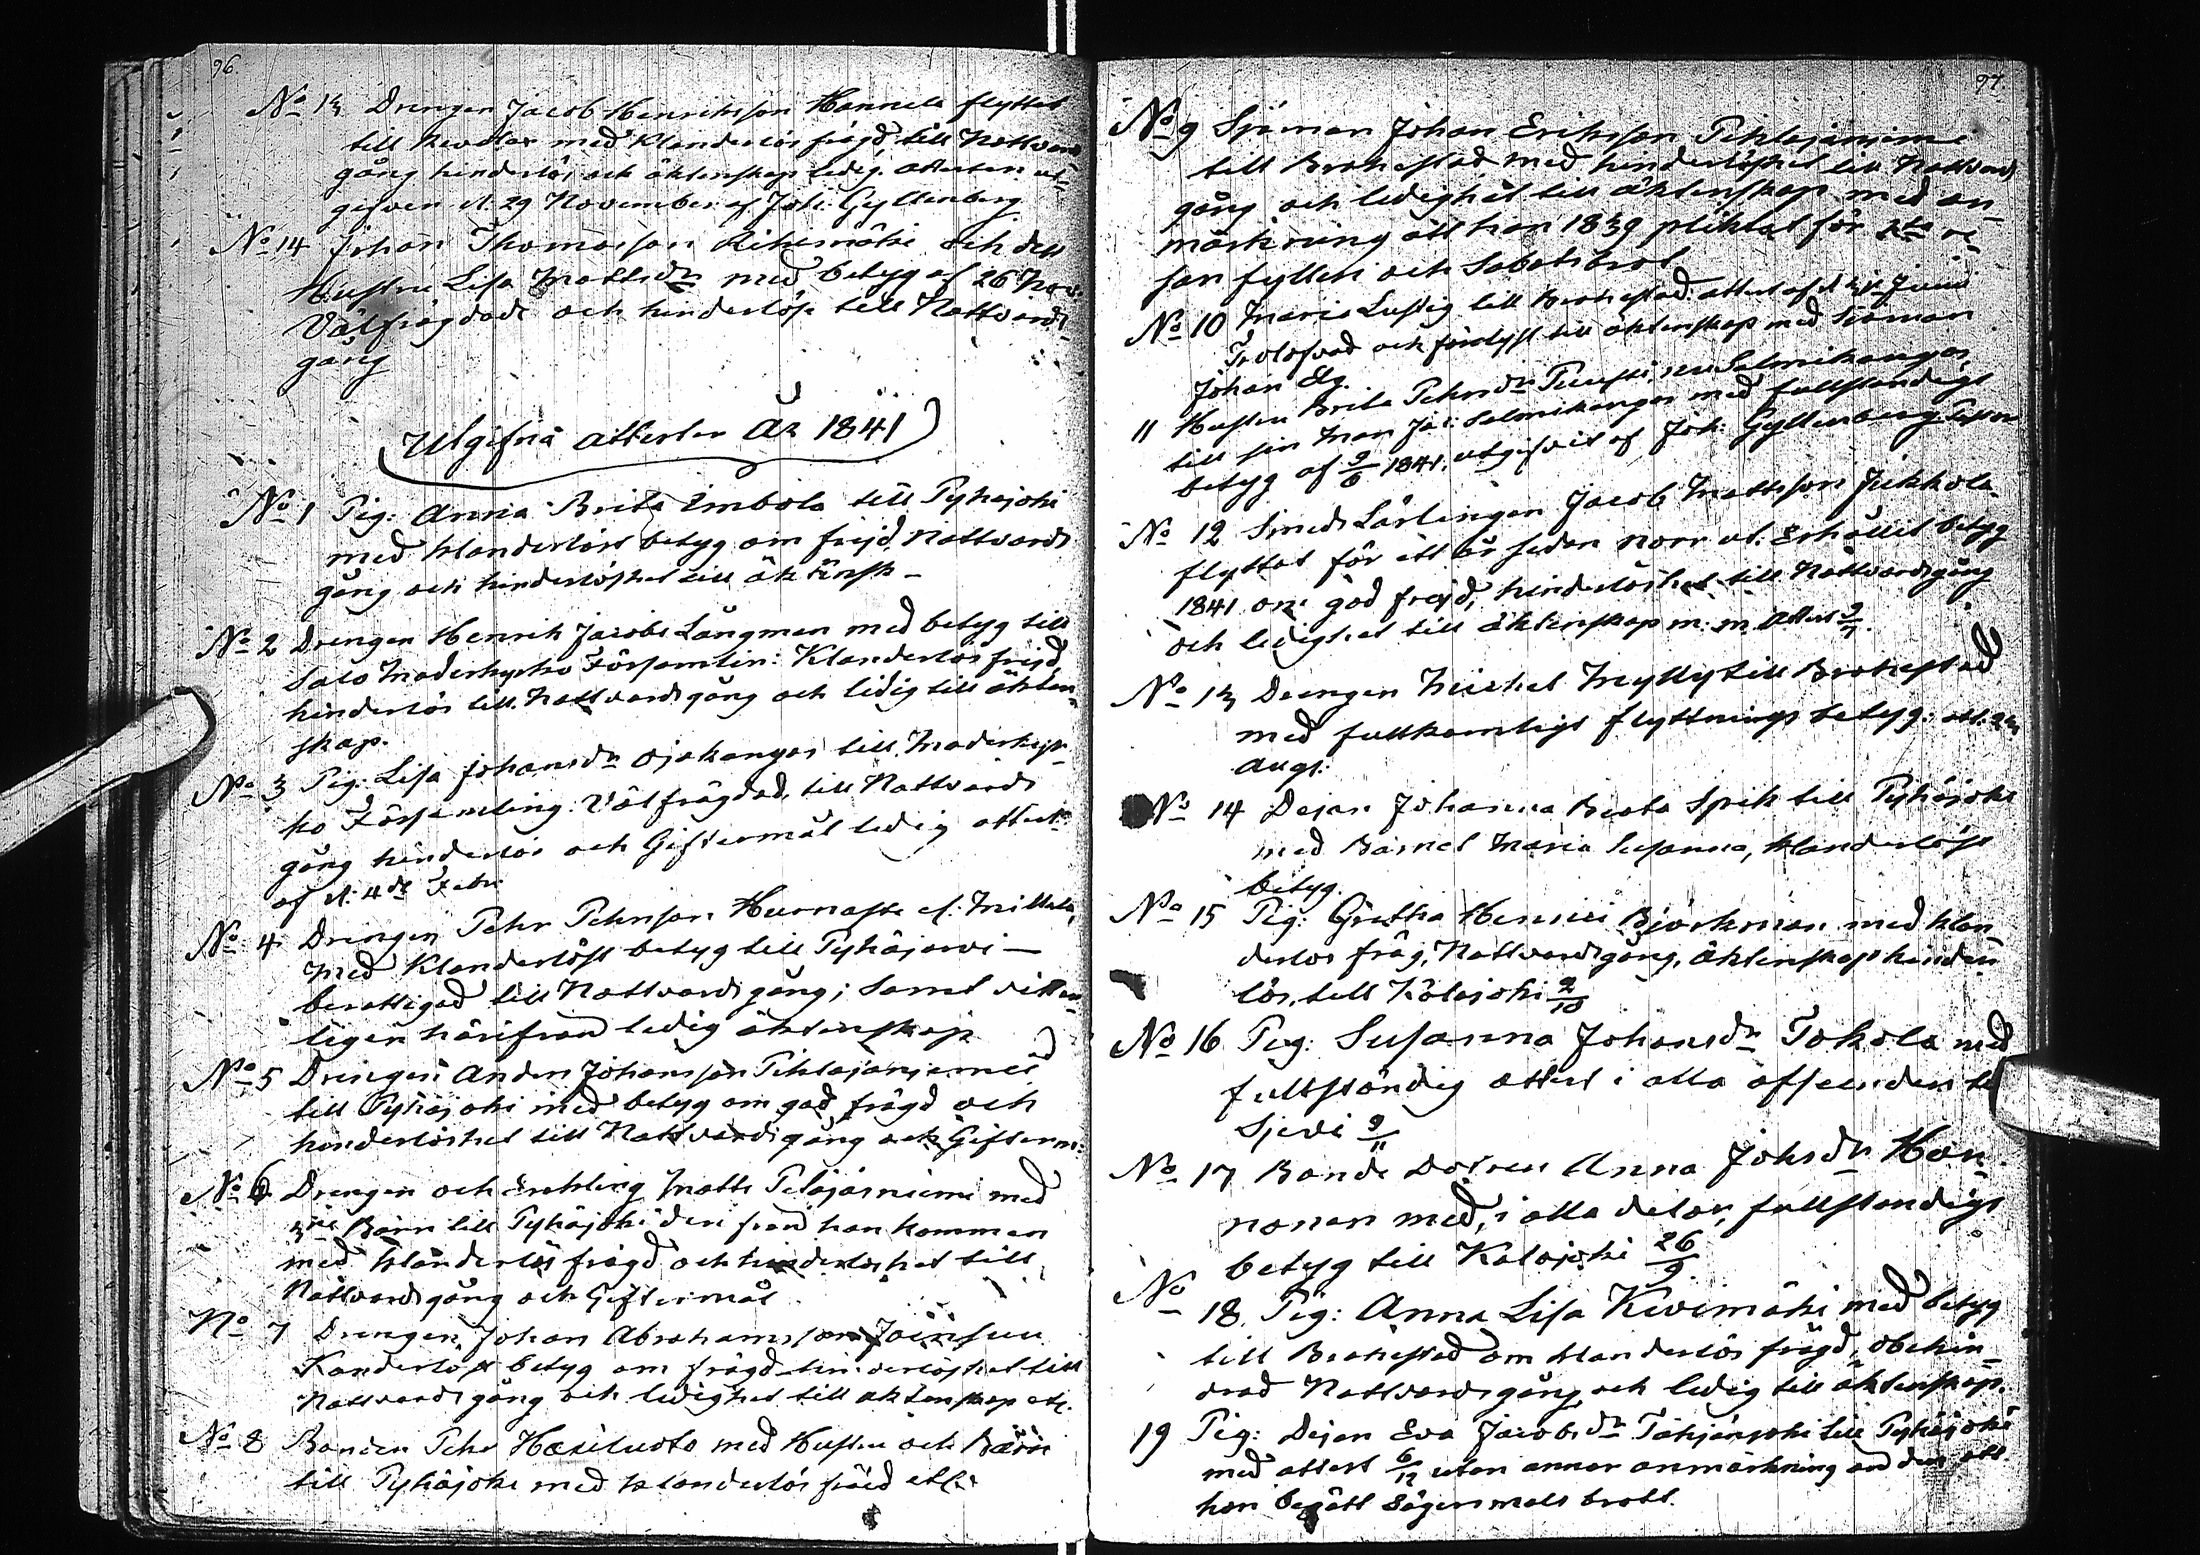 96.
No 13 Drengen Jacob Henriksson Hannula flyttat
till Revolax med Klanderlös frägd, till Nattvards
gång hinderlös och äktenskap ledig. attesten ut-
gifven d. 29 November af Joh: Gyllenberg
No 14 Johan Thomasson Rihimäki och dess
Hustru Lisa Mattsdr med betyg af 26 Nov.
Välfrägdade och hinderlösa till Nattvards
gång
Utgifna attester År 1841
No 1 Pig: Anna Brita Embola till Pyhäjoki
med klanderlöst betyg om frejd, Nattvards
gång och hinderlöshet till äktensk-
No 2 Drengen Henrik Jacobs Långman med betyg till
Salo Moderkyrko Församlin: Klanderlös frejd,
hinderlös till Nattvardsgång och ledig till äkten-
skap.
No 3 Pig: Lisa Johansdr Ojakangas till Moderkyr-
ko Församling. Välfrägdad, till Nattvards
gång hinderlös och Giftermål ledig attest
af d. 4de Febr:
No 4 Drengen Pehr Pehrsson Hurnasti
med Klanderlöst betyg till Pyhäjärvi
berättigad till Nattvards gång; samt
ledig äktenskap
No 5 Drengen Anders Johansson Pihlajaniemi
till Pyhäjoki med betyg om god frägd och
hinderlöshet till Nattvardsgång och Gifterm:
No 6 Drengen och Enkling Matts Pilajaniemi med
3ne Barn till Pyhäjoki den frand han kommen
med klanderlös frägd och hinderlöshet till
Nattvardsgång och Giftermål
No 7 Drengen Johan Abrahamsson Joensuu
Klanderlöst betyg om frägd hinderlöshet till
Nattvardsgång och ledighet till äktenskap etc.
No 8 Bonden Pehr Haeiluoto med Hustru och Barn
till Pyhäjoki med klanderlös fräid etc.
97.
No 9 Sjöman Johan Eriksson Pihlajaniemi
till Brahestad med hinderlöshet till Nattvard
gång och ledighet till äktenskap med an-
märkning att han 1839 pliktat för 2dra re-
san fylleri och Sabatsbrot
No 10 Maria Lustig till Brahestad attest af d Juni
Trolofvad och förelyst till äktenskap med Sjöman
Johan Elg.
11 Hustru Brita Pehrsdr nu Salmikangas
till sin Man Jac: Salmikangas med fullständigt
betyg af 9/6 1841, utgifvit af Joh: Gyllenberg
No 12 Smeds Lärlingen Jacob Mattsson Jukkola
flyttat för ett år sedan norr ut. Erhållit betyg
1841 om god frejd, hinderlöshet till Nattvardsgång
och ledighet till äktenskap m. m. Attest
No 13 Drengen Michel Mylly till Brahestad
med fullkomligt flyttnings betyg. att. 23
Augs:
No 14 Dejan Johanna Beata Spik till Pyhäjoki
med Barnet Maria Susanna, klanderlöst
betyg.
No 15 Pig: Gretha Henrici Björkman med klan
derlös fräg, Nattvardsgång, äktenskaps hinder
lös, till Kalajoki 2/10
No 16 Pig: Susanna Johansdr Tokola med
fullständig attest i alla afseenden till
Sjevi 9/11
No 17 Bonde Dotren Anna Johsdr Han-
nonen med, i alla delar, fullständigt
betyg till Kalajoki 26/9
No 18. Pig: Anna Lisa Kivimäki med betyg
till Brahestad om klanderlös frägd, obehin-
drad Nattvardsgång och ledig till äktenskap.
19 Pig: Dejan Eva Jacobsdr till Pyhäjoki
med attest 6/12 utan annor anmärkning än den att
hon begått Lägersmåls brott.